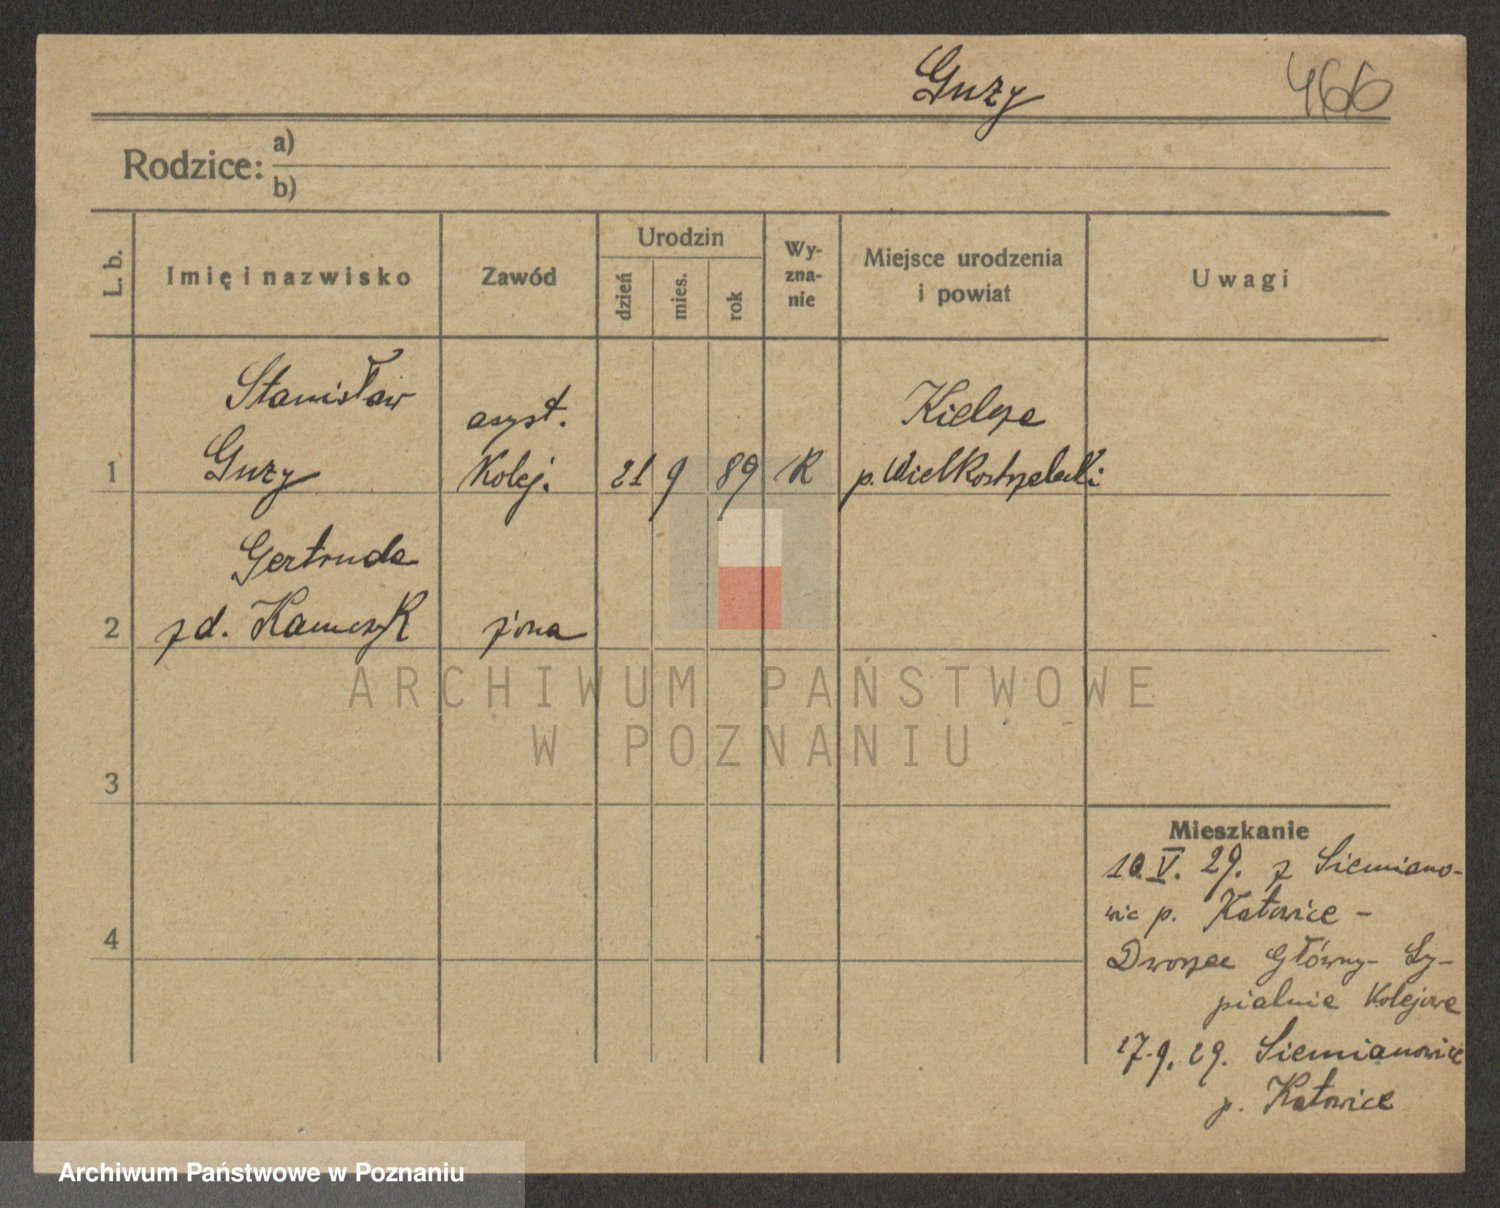 Guzy 466
Rodzice: a)
b)
L. b.
Imię i nazwisko
Zawód
Urodzin
dzień
mies.
rok
Wy-
zna-
nie
Miejsce urodzenia
i powiat
Uwagi
Stanisław
asyst.
Kielcza
1 Guzy Kolej. 21 9 89 R p. Wielkostrzelecki
Gertruda
2 z d. Kamczyk żona
ARCHIWUM PAŃSTWOWE
W POZNANIU
3
Mieszkanie
10.V. 29. z Siemiano-
wic p. Katowice -
4
Dworzec Główny - Sy-
pialnia Kolejowa
17.9.29. Siemianowice
p. Katowice
Archiwum Państwowe w Poznaniu